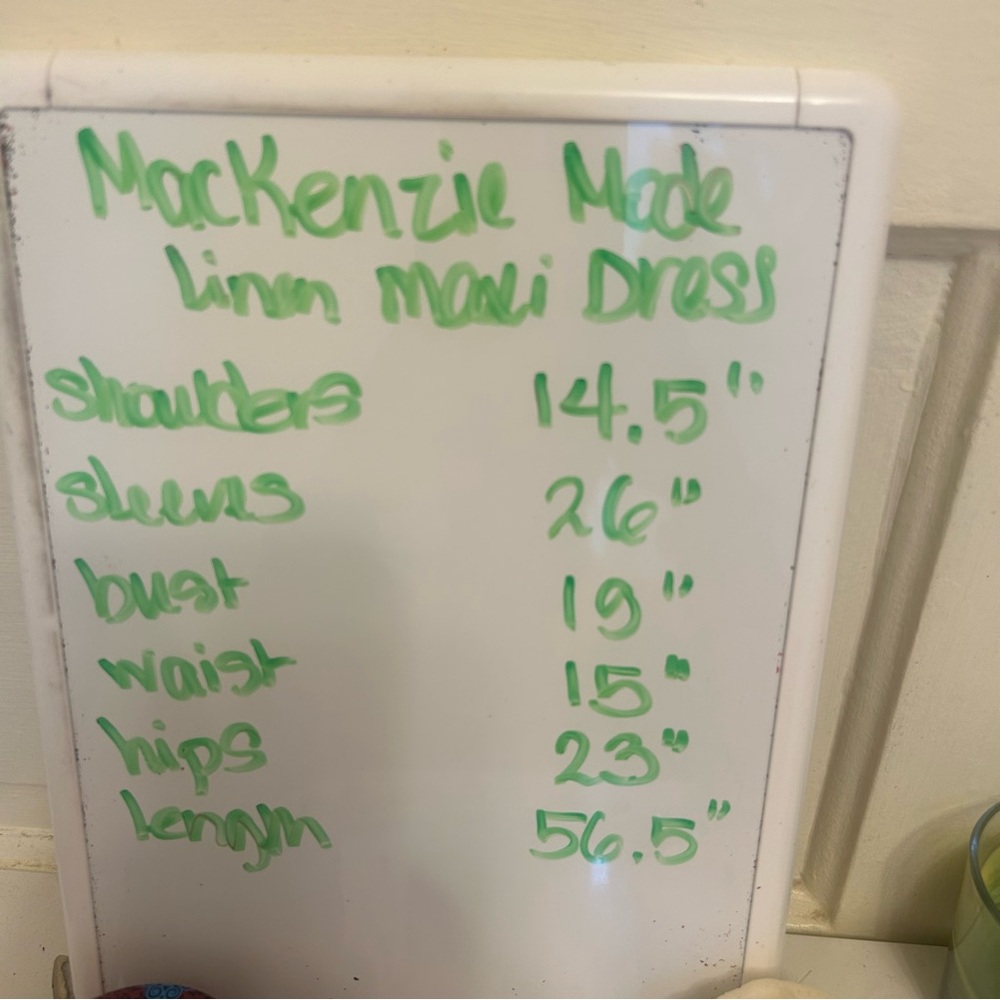 MacKenzie Mode
Linen Maxi Dress
shoulders 14.5"
sleeves 26"
bust 19"
waist 15"
hips 23"
length 56.5"